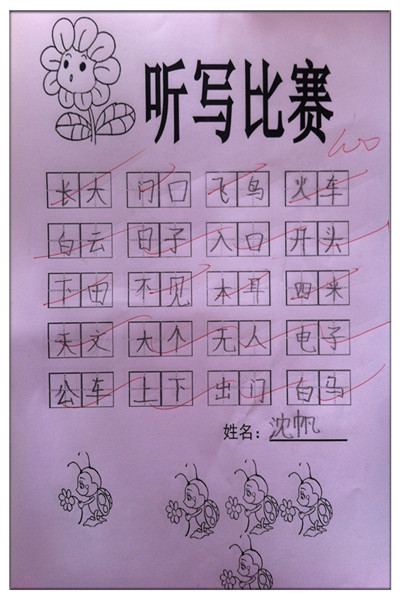 听写比赛
100
长大 门口 飞鸟 火车
白云 日子 入口 开头
下田 不见 本耳 四来
天文 大个 无人 电子
公车 上下 出门 白马
姓名：沈帆